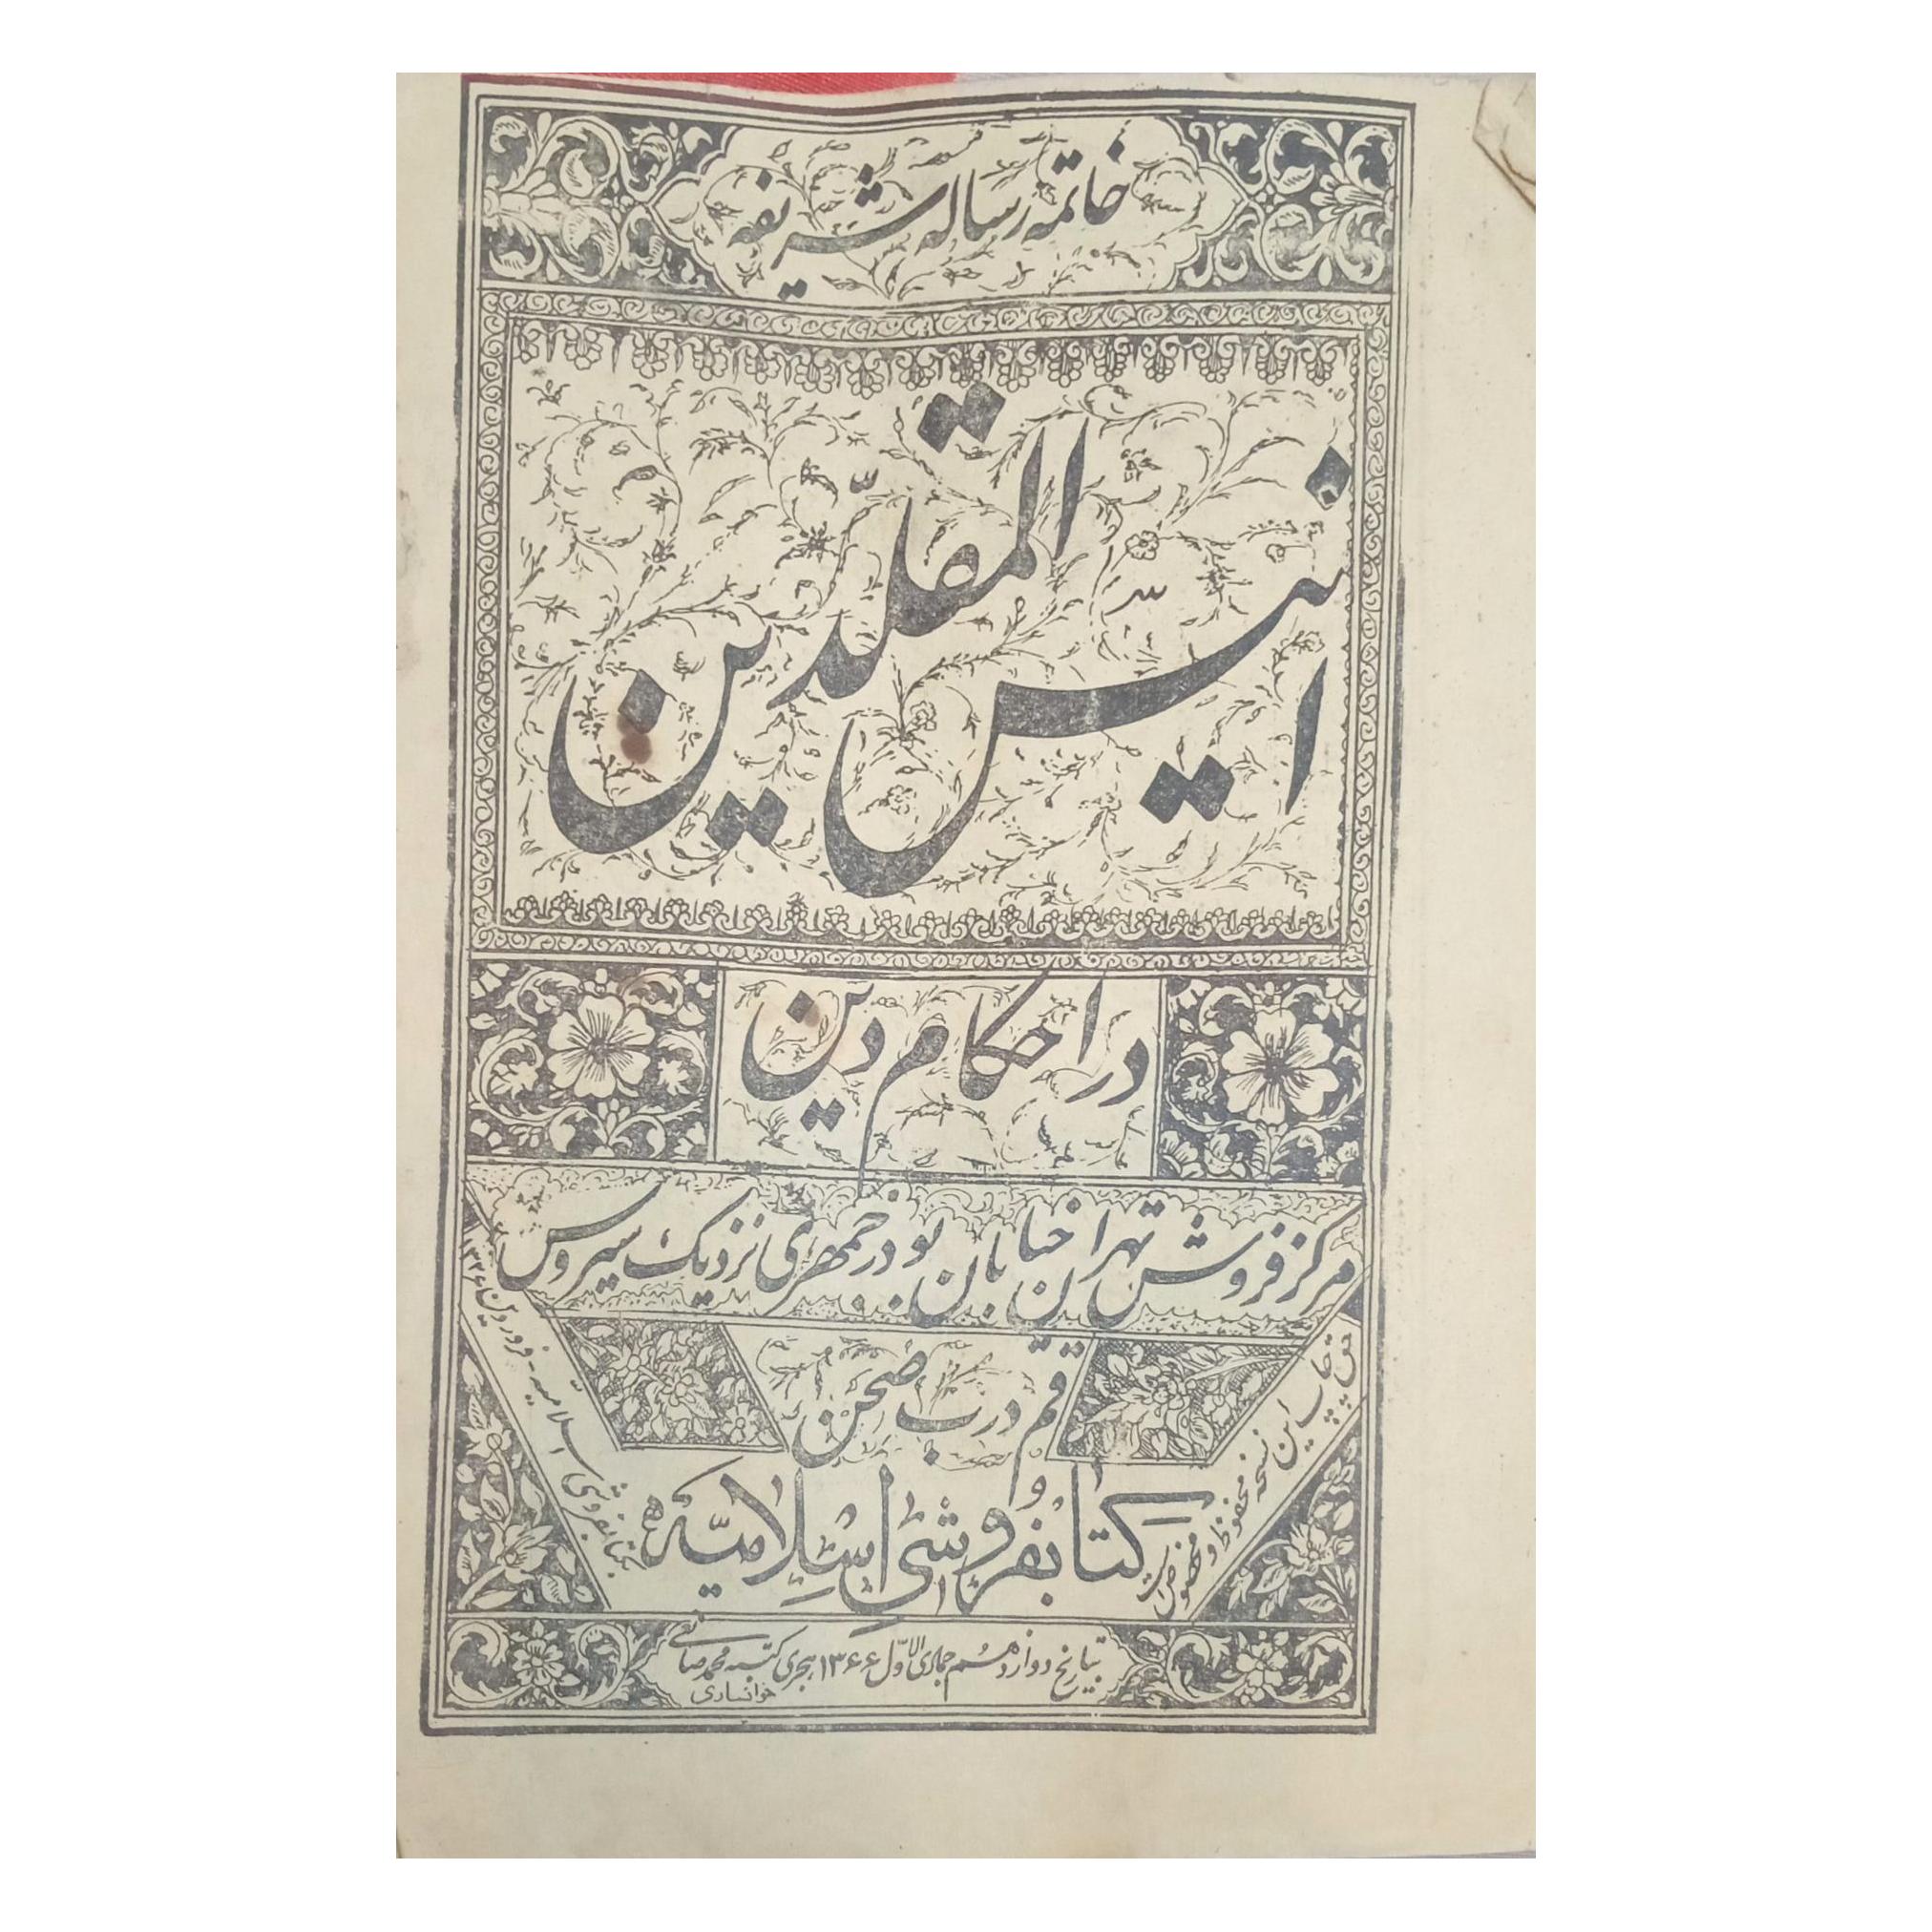 خاتمه رساله شریفه
انیس المقلّدین
در احکام دین
مرکز فروش تهران خیابان بوذرجمهری نزدیک سیروس
قم درب صحن
کتابفروشی اسلامیّه
حق چاپ این نسخه محفوظ و مخصوص است
بکتابفروشی اسلامیّه - فروردین ۱۳۲۶
بتاریخ دوازدهم جمادی الاوّل ۱۳۶۶ هجری کتبه محمد صانعی
خوانساری